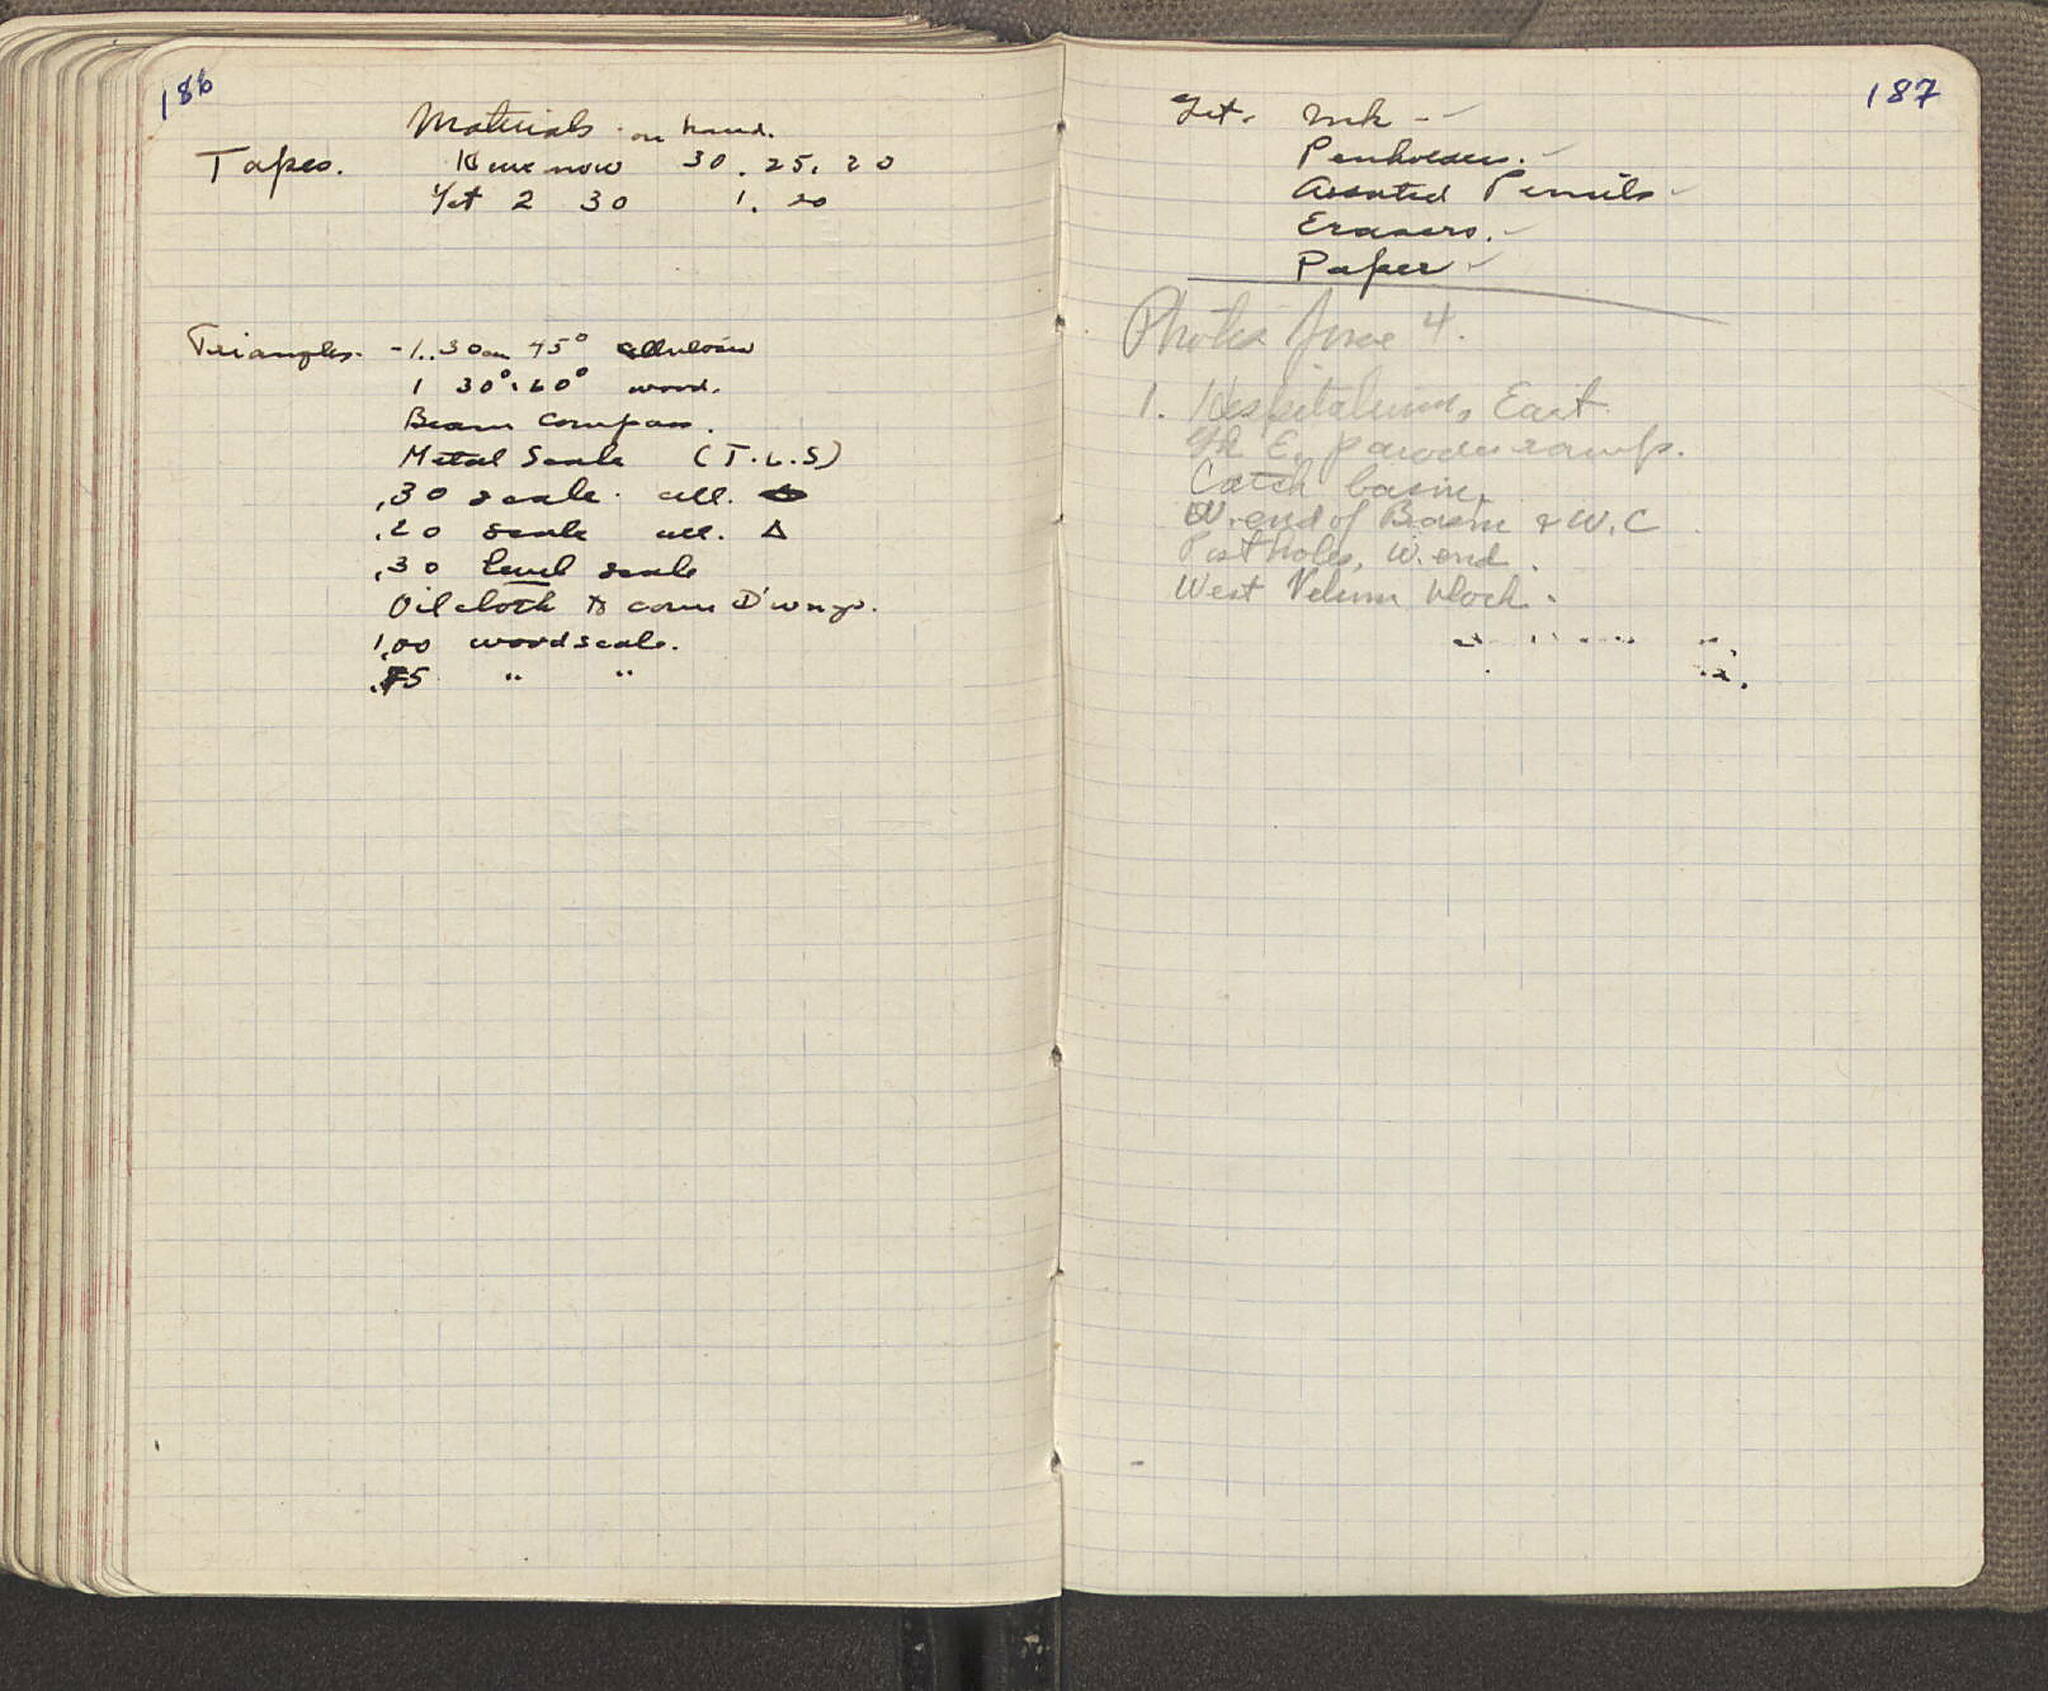 186
Materials on hand.
Tapes. Have now 30. 25. 20
Get 2 30 1. 20
Triangles. - 1. .30 cm 45° celluloid
1 30°.60° wood.
Beam Compass.
Metal Scale (T.L.S)
,30 scale. cell.
.20 scale cell. Δ
,30 level scale
Oilcloth to cover D'wngs.
1,00 wood scale.
.75 " "
187
Get. Ink -
Penholders.
Assorted Pencils
Erasers.
Paper
Photos June 4.
1. Hospitalium, East
Gk E. parodos ramp.
Catch basin,
W. end of Basin & W.C
Post holes, W. end.
West Velum block.